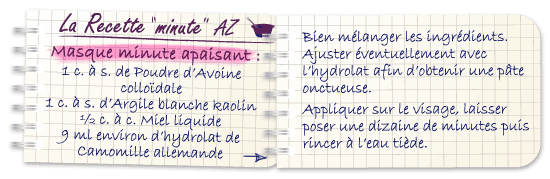 La Recette "minute" AZ
Masque minute apaisant :
1 c. à s. de Poudre d'Avoine
colloïdale
1 c. à s. d'Argile blanche kaolin
½ c. à c. Miel liquide
9 ml environ d'hydrolat de
Camomille allemande
Bien mélanger les ingrédients.
Ajuster éventuellement avec
l'hydrolat afin d'obtenir une pâte
onctueuse.
Appliquer sur le visage, laisser
poser une dizaine de minutes puis
rincer à l'eau tiède.